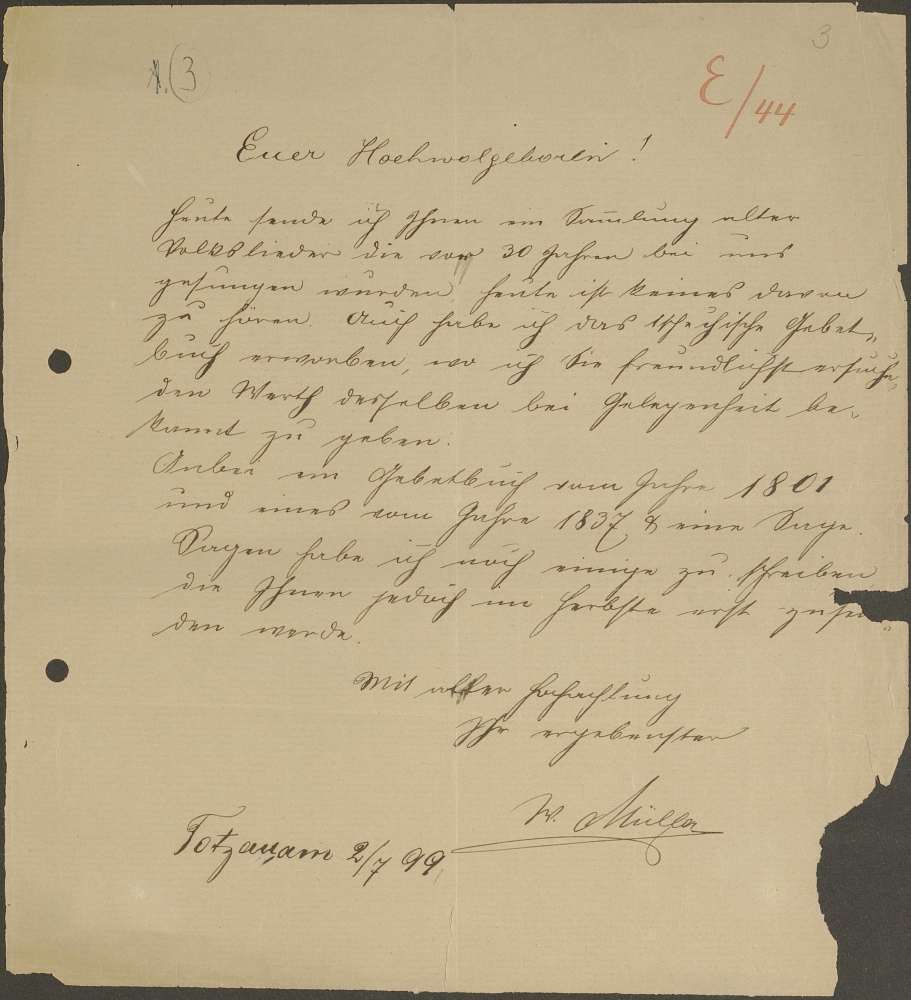 3
1. (3)
E/44
Euer Hochwolgeboren!
Heute sende ich Ihnen ein Samlung alter
Volkslieder die vor 30 Jahren bei uns
gesungen wurden, heute ist keines davon
zu hören. Auch habe ich das tschechische Gebet-
buch erworben, wo ich Sie freundlichst ersuche,
den Werth desselben bei Gelegenheit be-
kannt zu geben.
Anbei ein Gebetbuch vom Jahre 1801
und eines vom Jahre 1837 & eine Sage.
Sagen habe ich noch einige zu schreiben
die Ihnen jedoch im Herbste erst zusen-
den werde.
Mit aller Hochachtung
Ihr ergebenster
W. Müller
Totzau am 2/7 99.